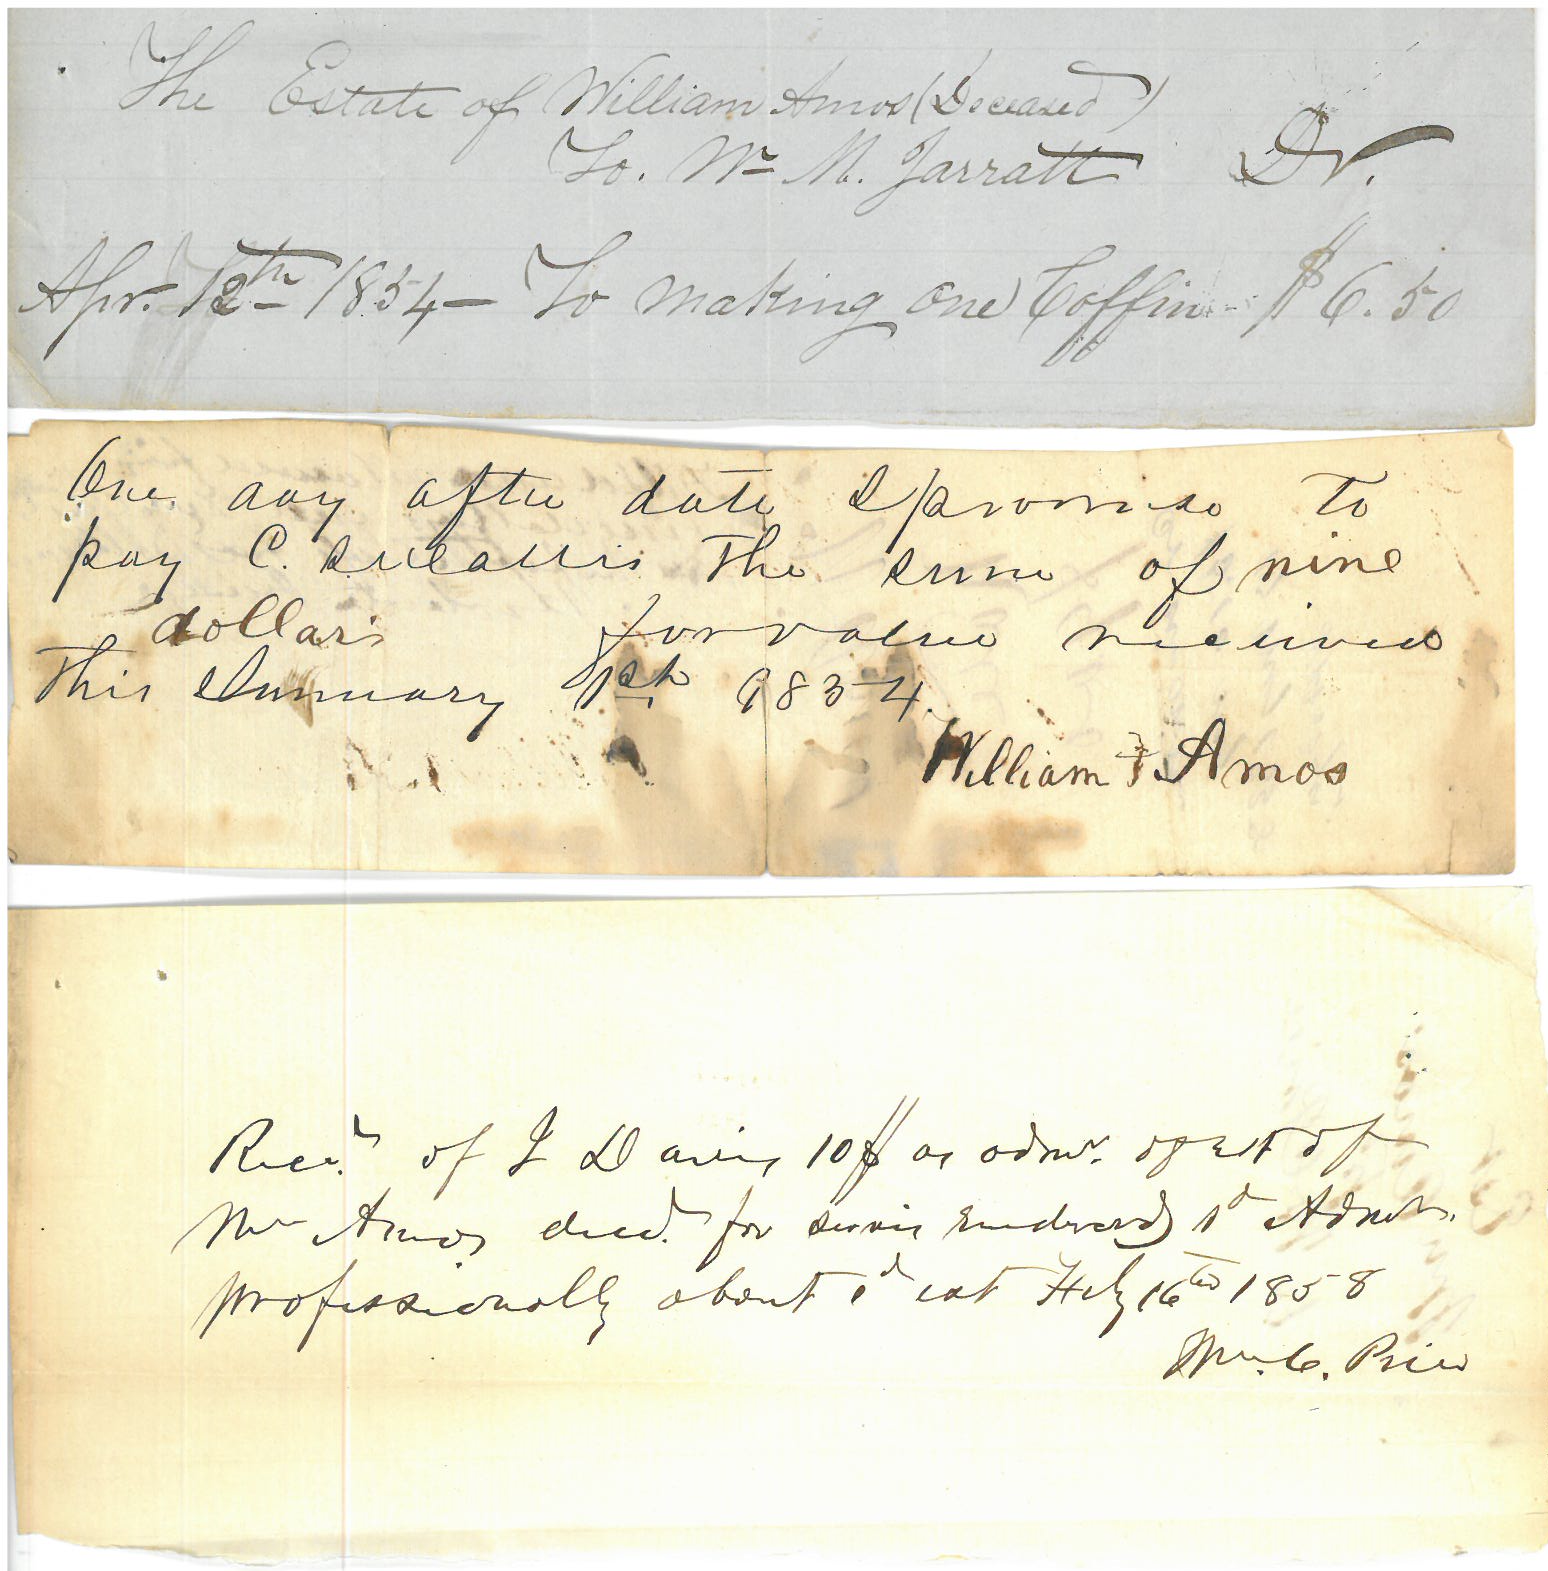 The Estate of William Amos (Deceased)
To. Wm M. Jarratt Dr.
Apr. 12th 1854 - To making one Coffin - $6.50
One day after date I promise to
pay C. the sum of nine
dollars for value received
this January 1st 1854.
William Amos
Recd. of J Davis 10$ as admr. of est of
Wm Amos decd. for servis rendered sd Admr.
professionally about sd est Feby 16th 1858
Wm. C. Price